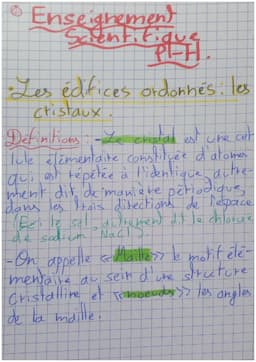 Enseignement
Scientifique
P1-H.
Les édifices ordonnés: les
cristaux.
Définitions: - Le cristal est une cel
lule élémentaire constituée d'atomes
qui est répétée à l'identique, autre-
ment dit, de manière périodique,
dans les trois directions de l'espace
(Ex: le sel, autrement dit le chlorure
de sodium NaCl)
- On appelle «Maille» le motif élé-
mentaire au sein d'une structure
cristalline et «noeuds» les angles
de la maille.